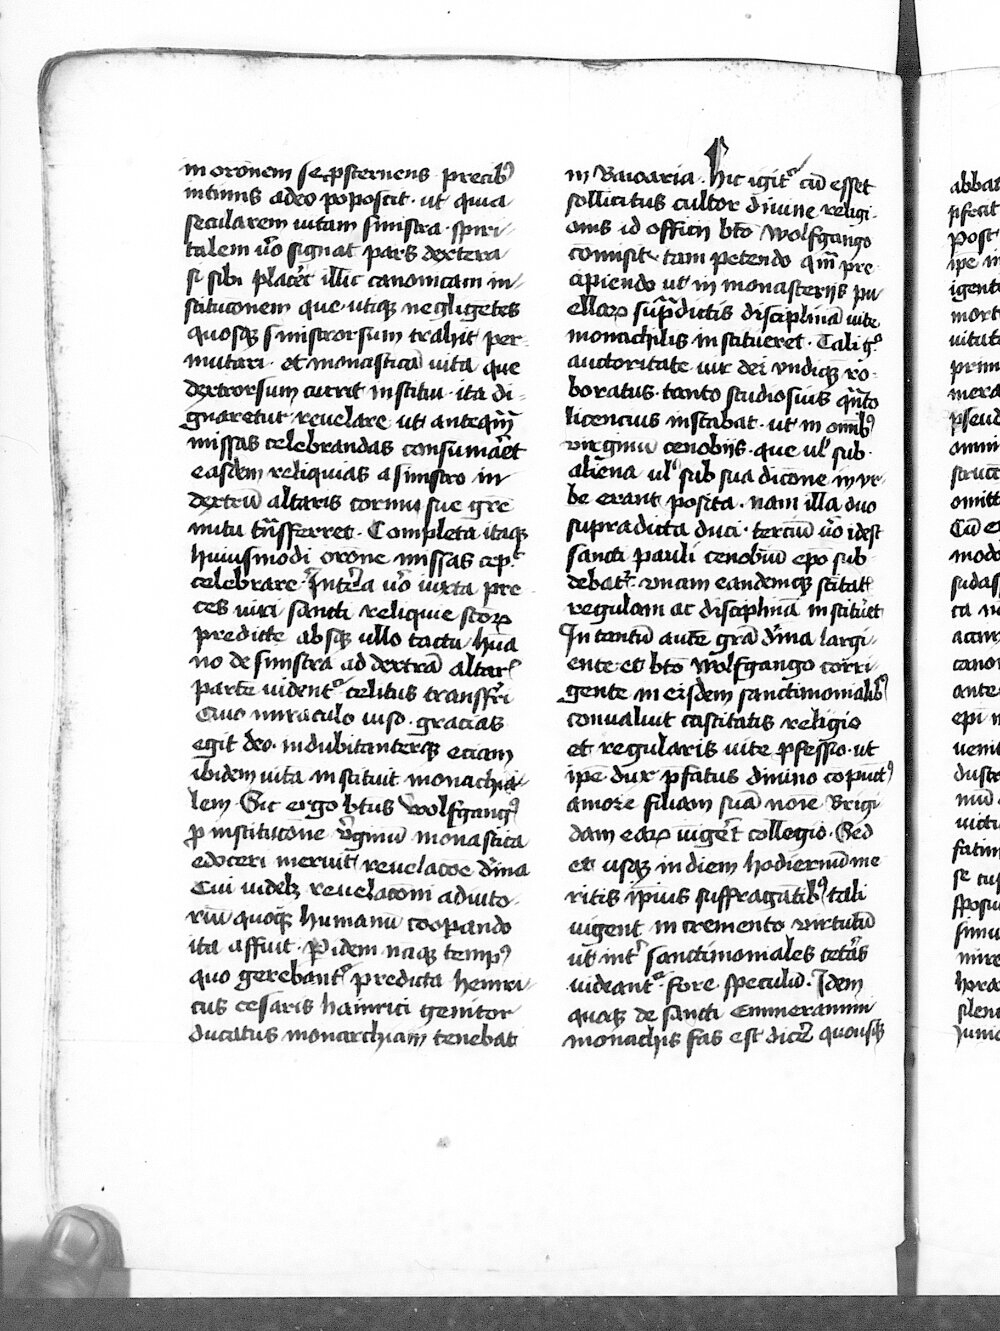 in oronem se ꝓsternens precibꝰ
intimis adeo poposcit · ut quia
secularem uitam sinistra · spiri-
talem u̅o signat pars dextera
si sibi placet illic canonicam in-
stitucionem que utiqꝫ negligetes
quosqꝫ sinistrorsum trahit per-
mutari · et monastica̅ uita que
dextrorsum currit institui · ita di-
gnaretur reuelare ut anteqm̅
missas celebrandas consumaret
easdem reliquias a sinistro in
dextru̅ altaris cornu sue gre
mitu tn̅sferret · Completa itaqꝫ
huiusmodi orone missas cep̅
celebrare · Int̅ea u̅o iuxta pre-
ces uiri sancti reliquie sc̅oꝝ
predicte absqꝫ ullo tactu hu̅a
no de sinistra ad dextra̅ altar̅
parte̅ uident̅ celitus transfe̅ri
Quo miraculo uiso · gracias
egit deo · indubitanterqꝫ eciam
ibidem uita instituit monachia-
lem · Sic ergo b̅tus Wolfgangꝰ
ꝓ institucione u̅ginu̅ monastica
edoceri meruit reuelac̅oe d̅ina
Cui uidelꝫ reuelaconi adiuto-
riu̅ quoqꝫ humanu̅ coopando
ita affuit · P idem naqꝫ tempꝰ
quo gerebant̅ predicta heinri-
cus cesaris hainrici genitor
ducatus monarchiam tenebat
in Bauoaria · Hic igit̅ cu̅ esset
sollicitus cultor diuine religi-
onis id officij b̅to Wolfgango
co̅misit · tam petendo qm̅ pre-
cipiendo ut in monasterijs pu
ellaꝝ sup̅dictis disciplina̅ uite
monachilis institueret · Tali gͦ
auctoritate uir dei undiqꝫ ro-
boratus · tanto studiosius qn̅to
licencius instabat · ut in om̅ibꝰ
virginu̅ cenobijs · que ul̅ sub
aliena ul̅ sub sua dicione in ur-
be erant posita · nam illa duo
supradicta duci · terciu̅ u̅o idest
sancti pauli cenobiu̅ ep̅o sub-
debat̅ · unam eandemqꝫ sc̅titat̅
regulam ac disciplina̅ institu̅et
In tantu̅ aute̅ gr̅a d̅ina largi-
ente et b̅to Wolfgango corri-
gente in eisdem sanctimonialibꝰ
conualuit castitatis religio
et regularis uite ꝓfessio · ut
ip̅e dux p̅fatus diuino co̅punctꝰ
amore filiam sua̅ no̅ie Brigi-
dam eaꝝ iu̅ge̅t collegio · Sed
et usqꝫ in diem hodiernu̅ me
ritis ip̅ius suffragantibꝰ tali
uigent incremento uirtutu̅
ut int̅ sanctimoniales cet̅as
uideant̅ fore speculu̅ · Idem
quoqꝫ de sancti Emmerammi
monachis fas est dice̅ quousqꝫ